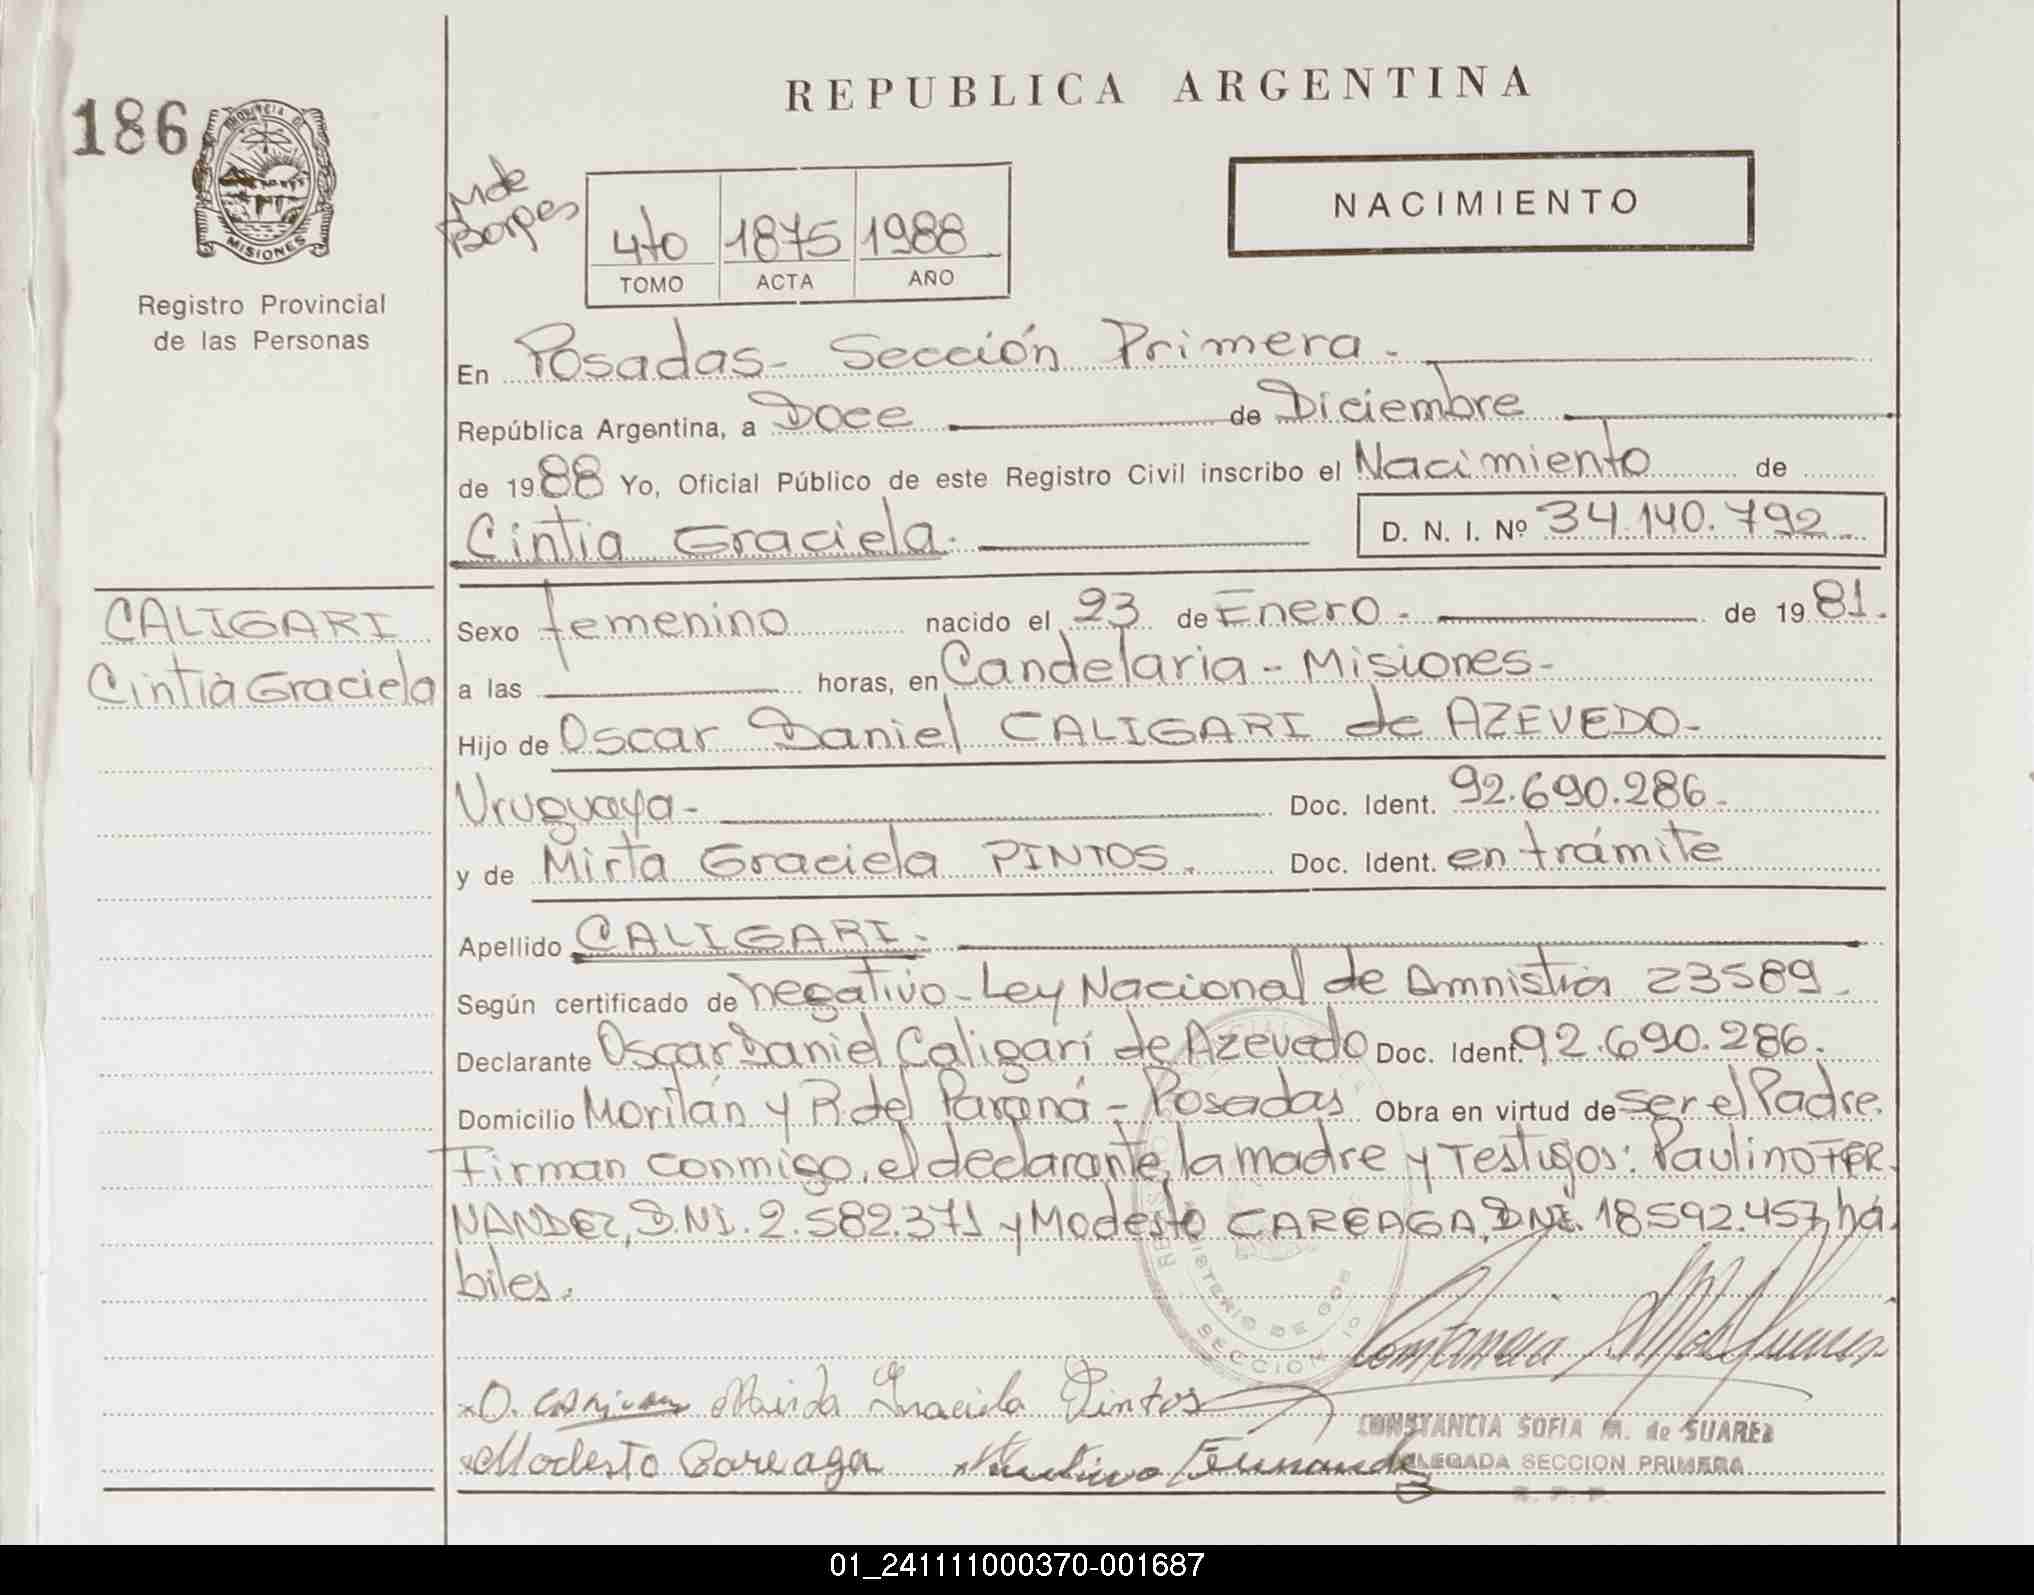 REPUBLICA ARGENTINA
186
PROVINCIA DE
MISIONES
Registro Provincial
de las Personas
M de
Borges
4to 1875 1988
TOMO ACTA AÑO
NACIMIENTO
En Posadas- Sección Primera.
República Argentina, a Doce de Diciembre
de 1988 Yo, Oficial Público de este Registro Civil inscribo el Nacimiento de
Cintia Graciela. D. N. I. Nº 34.140.792
CALIGARI
Cintia Graciela
Sexo femenino nacido el 23 de Enero. de 1981.
a las horas, en Candelaria - Misiones-
Hijo de Oscar Daniel CALIGARI de AZEVEDO-
Uruguaya- Doc. Ident. 92.690.286.
y de Mirta Graciela PINTOS. Doc. Ident. en trámite
Apellido CALIGARI.
Según certificado de negativo-Ley Nacional de Amnistía 23589.
Declarante Oscar Daniel Caligari de Azevedo Doc. Ident. 92.690.286.
Domicilio y R. del Paraná - Posadas Obra en virtud de ser el Padre.
Firman conmigo, el declarante, la madre y Testigos: Paulino FER
NANDEZ, D.NI. 2.582.371 y Modesto CAREAGA, DNI. 18592.457, há
biles.
MINISTERIO DE GOB
SECCION 1
O. Mirida Graciela Pintos
Modesto Careaga Paulino Fernandez
CONSTANCIA SOFIA M. de SUAREZ
DELEGADA SECCION PRIMERA
R. P. P.
01_241111000370-001687